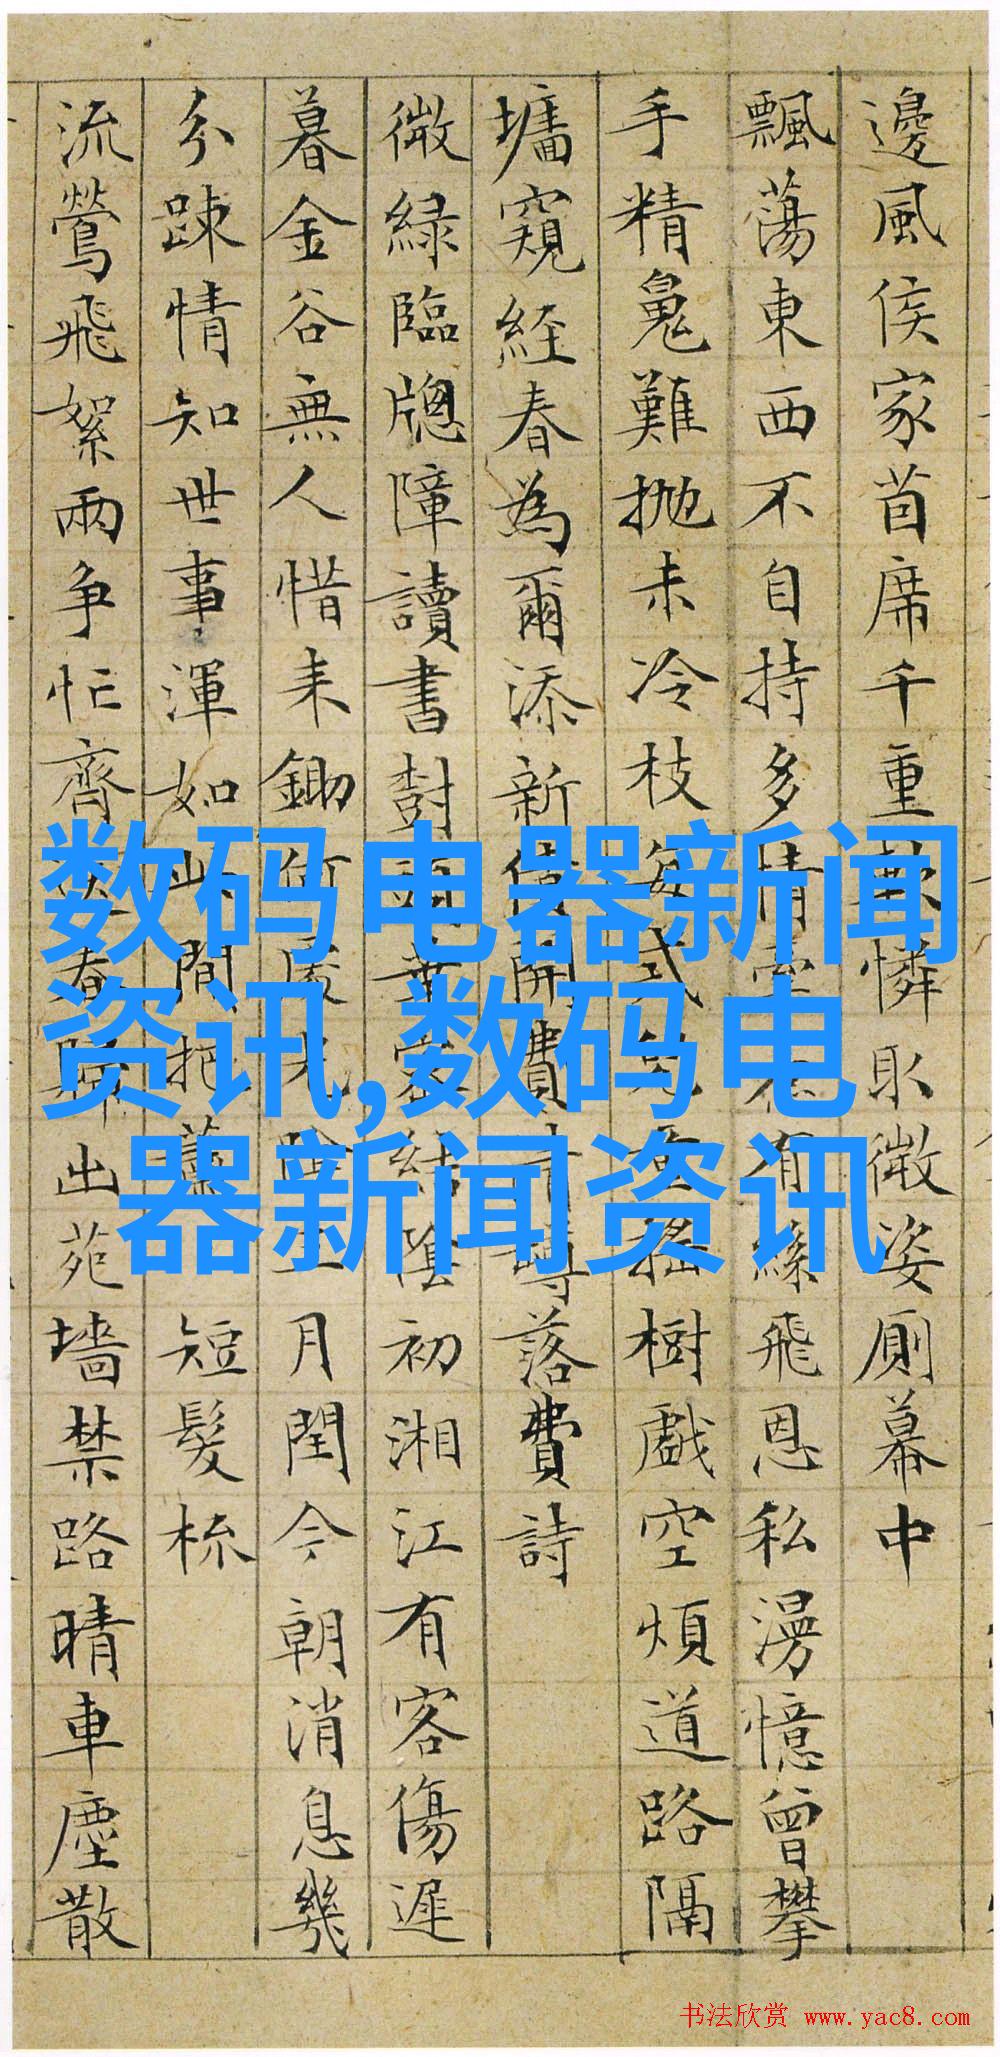 邊風侯家茵席千重軟憐取微姿厠幕中
飄蕩東西不自持多情有絲飛恩私漫憶曾攀
手精䰟難抛未冷枝摇樹戲空煩道路隔
墉窺経春為爾添新開費落費詩
微緑臨牕障讀書封結陰初湘江有客傷遲
暮金谷無人惜耒鋤何月閏今朝消息幾
分踈情知世事渾如此間短髮梳
流鶯飛絮兩争忙齊春歸出苑墻禁路晴車塵散
数码电器新闻
资讯,数码电
器新闻资讯
书法欣赏 www.yac8.com